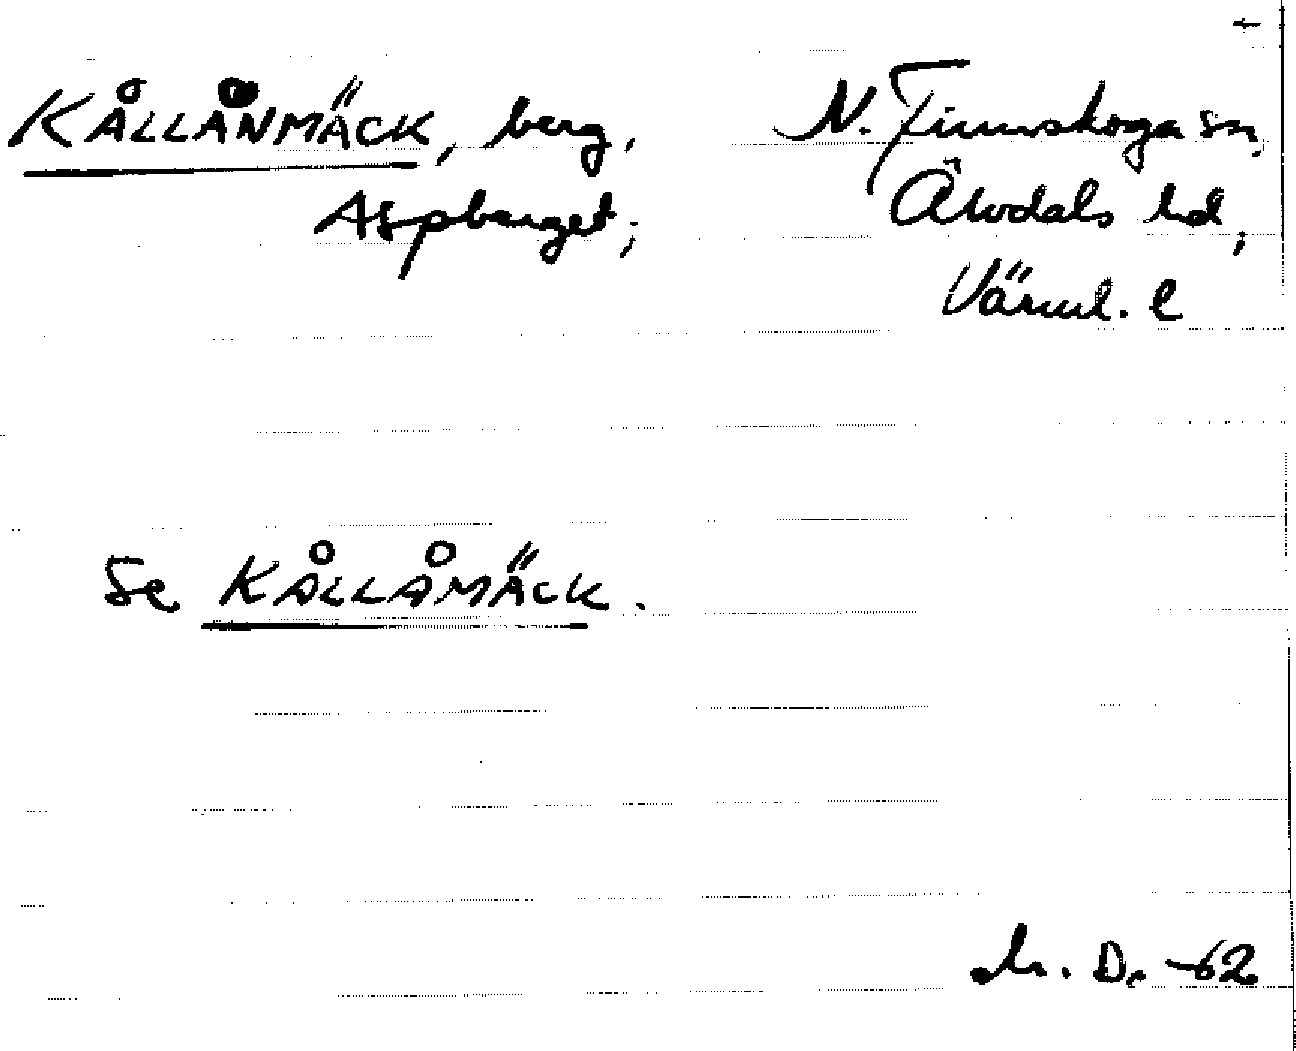 KÅLLÅNMÄCK, berg, N. Finnskoga sn,
Aspberget; Älvdals hd,
Värml. l
Se KÅLLÅMÄCK.
D. -62